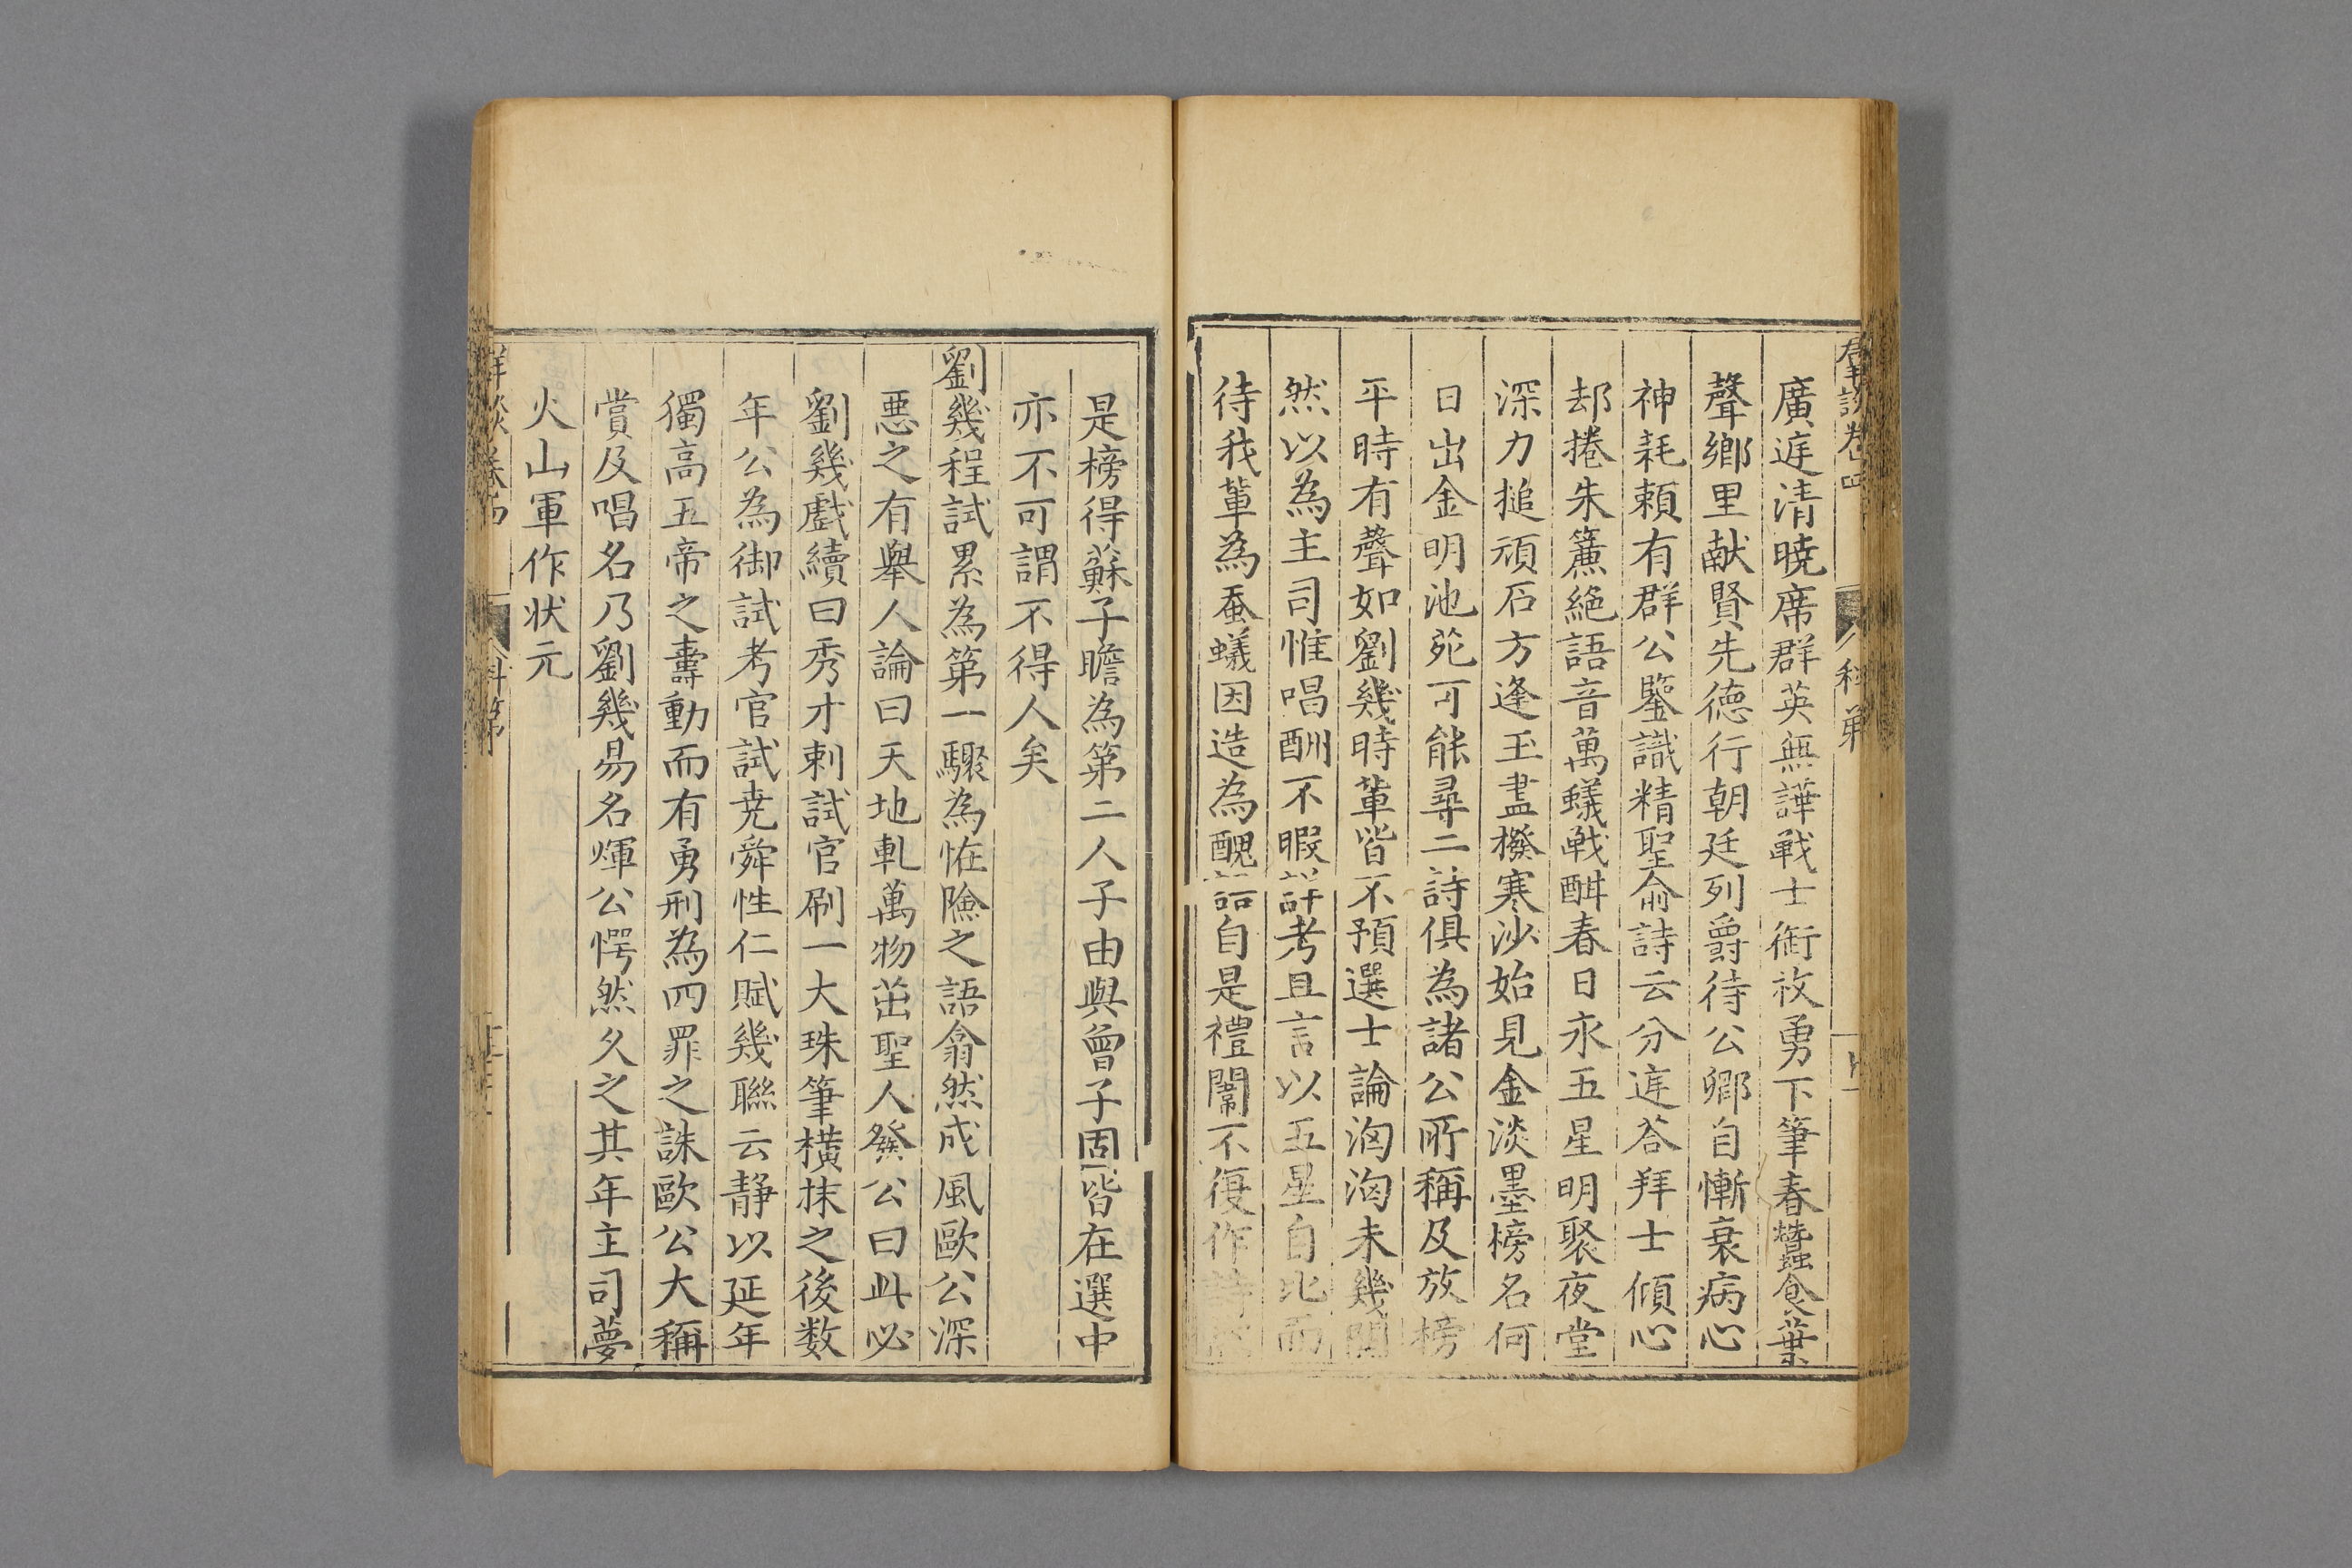 廣庭清曉席群英無譁戰士銜枚勇下筆春蠶食葉
聲鄉里献賢先德行朝廷列爵待公卿自慚衰病心
神耗頼有群公鑒識精聖俞詩云分庭荅拜士傾心
却捲朱簾絶語音萬蟻戰酣春日永五星明聚夜堂
深力搥頑石方逢玉盡撥寒沙始見金淡墨榜名何
日出金明池苑可能尋二詩俱為諸公所稱及放榜
平時有聲如劉幾時輩皆不預選士論洶洶未幾
然以為主司惟唱酬不暇詳考且言以五星自比而
待我輩為蚕蟻因造為醜自是禮闈不復作詩
是榜得蘇子瞻為第二人子由與曾子固皆在選中
亦不可謂不得人矣
劉幾程試累為第一驟為恠險之語翕然成風歐公深
惡之有舉人論曰天地軋萬物茁聖人發公曰此必
劉幾戲續曰秀才剌試官刷一大珠筆橫抹之後数
年公為御試考官試尭舜性仁賦幾聯云静以延年
獨高五帝之壽動而有勇刑為四罪之誅歐公大稱
賞及唱名乃劉幾易名煇公愕然久之其年主司夢
火山軍作状元